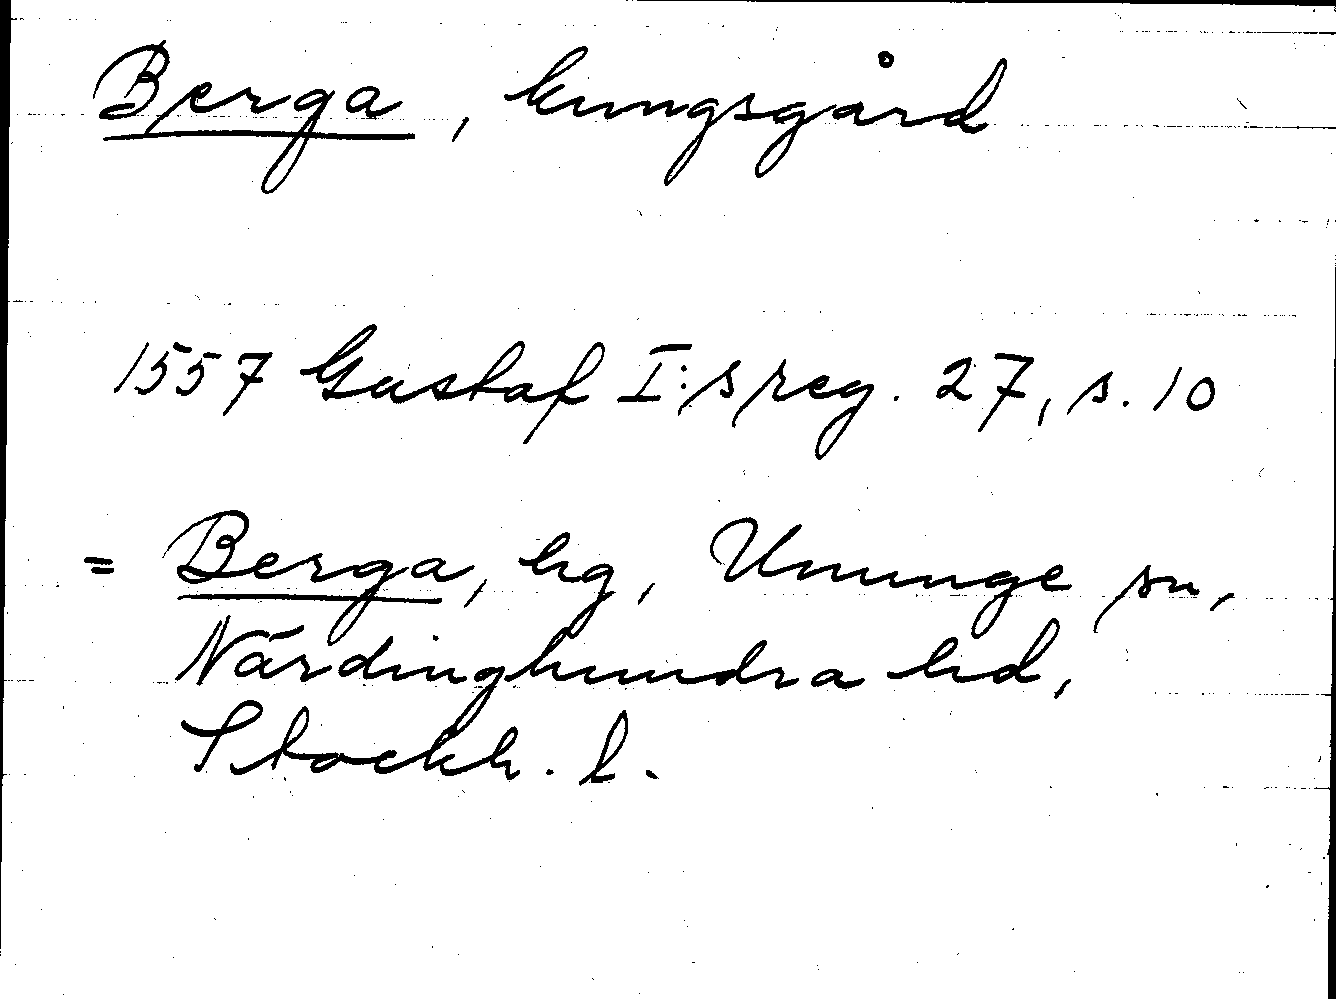 Berga, kungsgård
1557 Gustaf I:s reg. 27, s. 10
= Berga, hg, Ununge sn,
Närdinghundra hd,
Stockh. l.